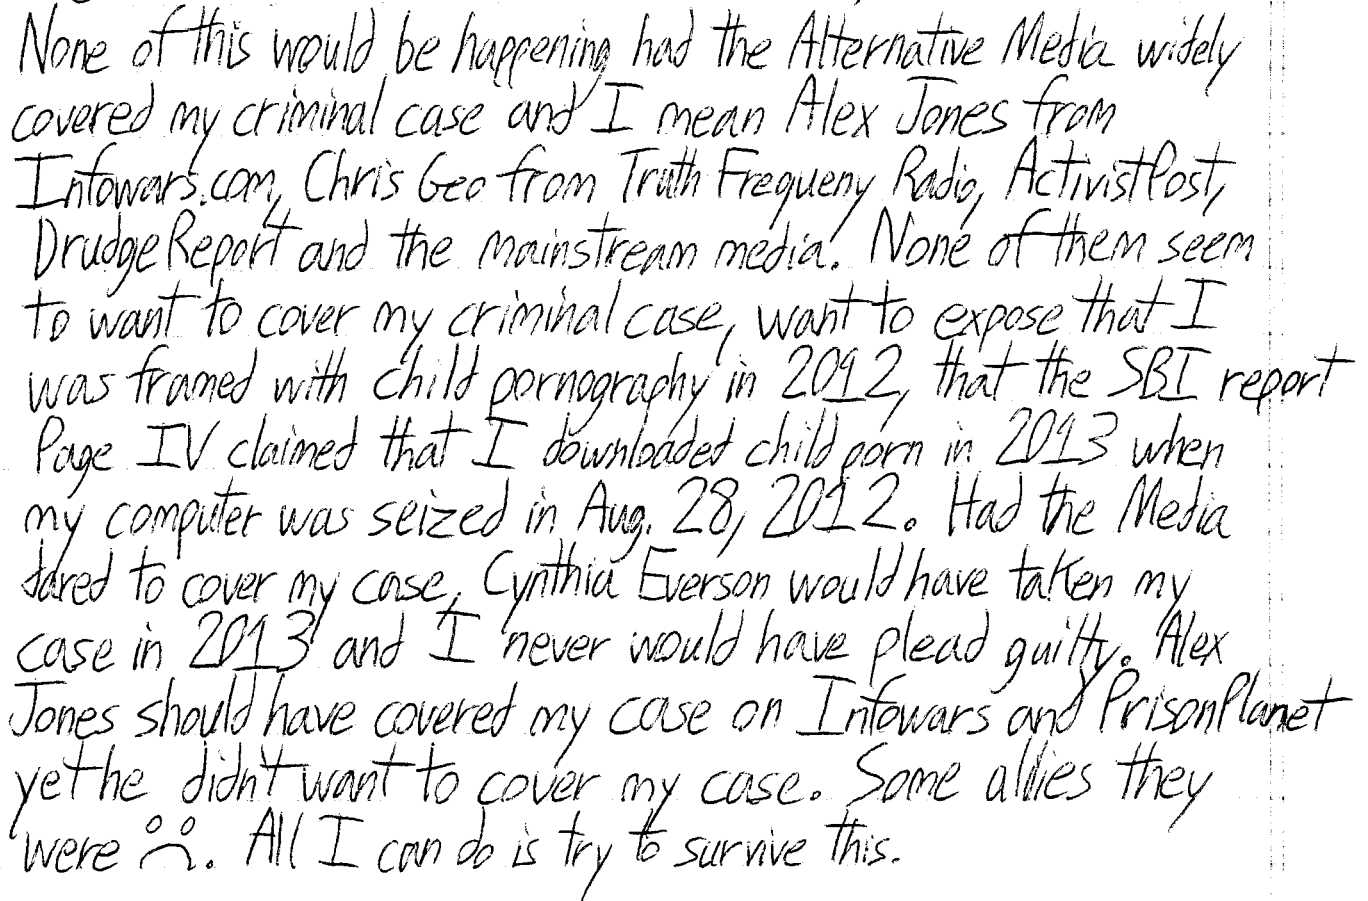 None of this would be happening had the Alternative Media widely
covered my criminal case and I mean Alex Jones from
Infowars.com, Chris Geo from Truth Frequeny Radio, ActivistPost,
DrudgeReport and the mainstream media. None of them seem
to want to cover my criminal case, want to expose that I
was framed with child pornography in 2012, that the SBI report
Page IV claimed that I downloaded child porn in 2013 when
my computer was seized in Aug. 28, 2012. Had the Media
dared to cover my case, Cynthia Everson would have taken my
case in 2013 and I never would have plead guilty. Alex
Jones should have covered my case on Infowars and PrisonPlanet
yet he didn't want to cover my case. Some allies they
were. All I can do is try to survive this.